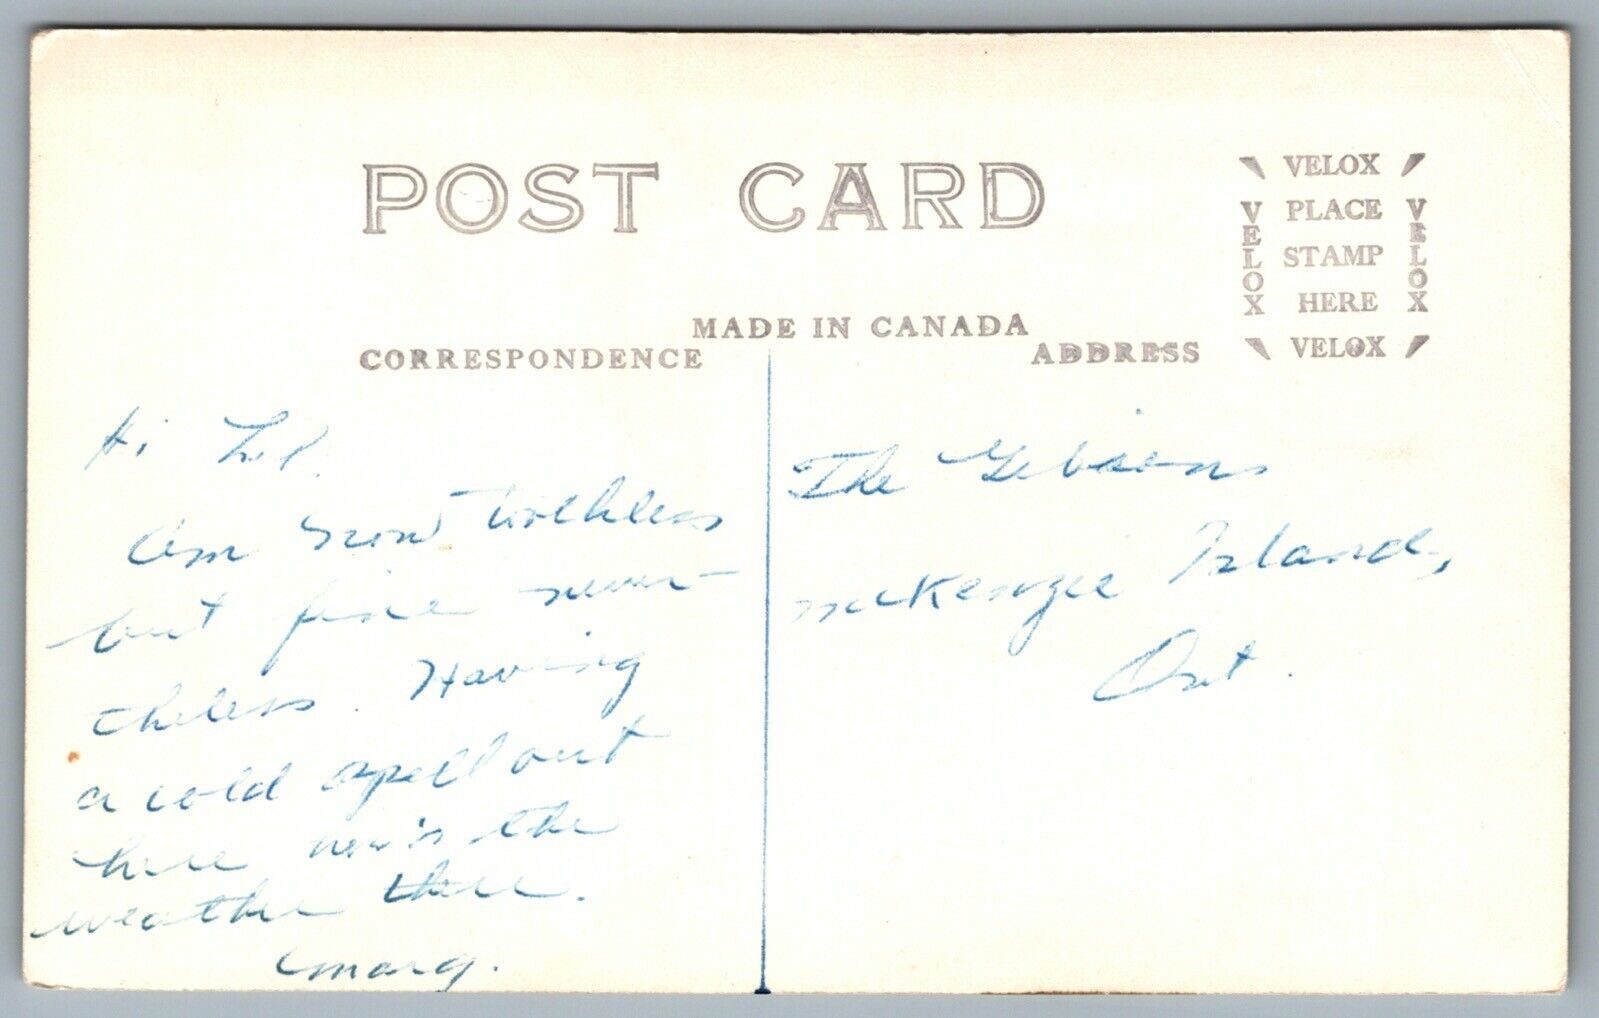 POST CARD
VELOX
PLACE
STAMP
HERE
VELOX
VELOX
VELOX
MADE IN CANADA
CORRESPONDENCE
ADDRESS
Hi Lil.
Am now toothless
but fine never-
theless. Having
a cold spell out
here how's the
weather there.
Marg.
The Gibsons
McKenzie Island,
Ont.